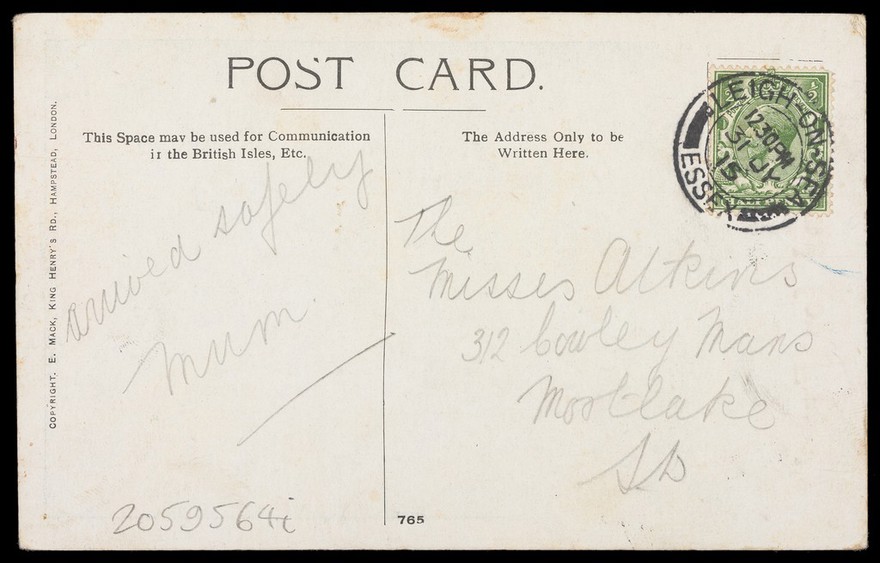 POST CARD.
This Space may be used for Communication
in the British Isles, Etc.
The Address Only to be
Written Here.
LEIGH-ON-SEA
12.30PM
31 JY
15
ESSEX
arrived safely
mum.
The
Misses Atkins
312 Cowley Mans
Mortlake
SW
COPYRIGHT. E. MACK, KING HENRY'S RD., HAMPSTEAD, LONDON.
2059564i
765